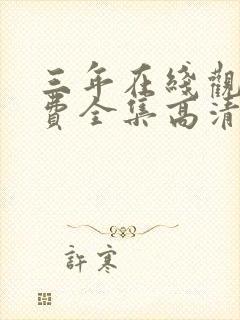 三年在綫觀
費全集高清
許寒